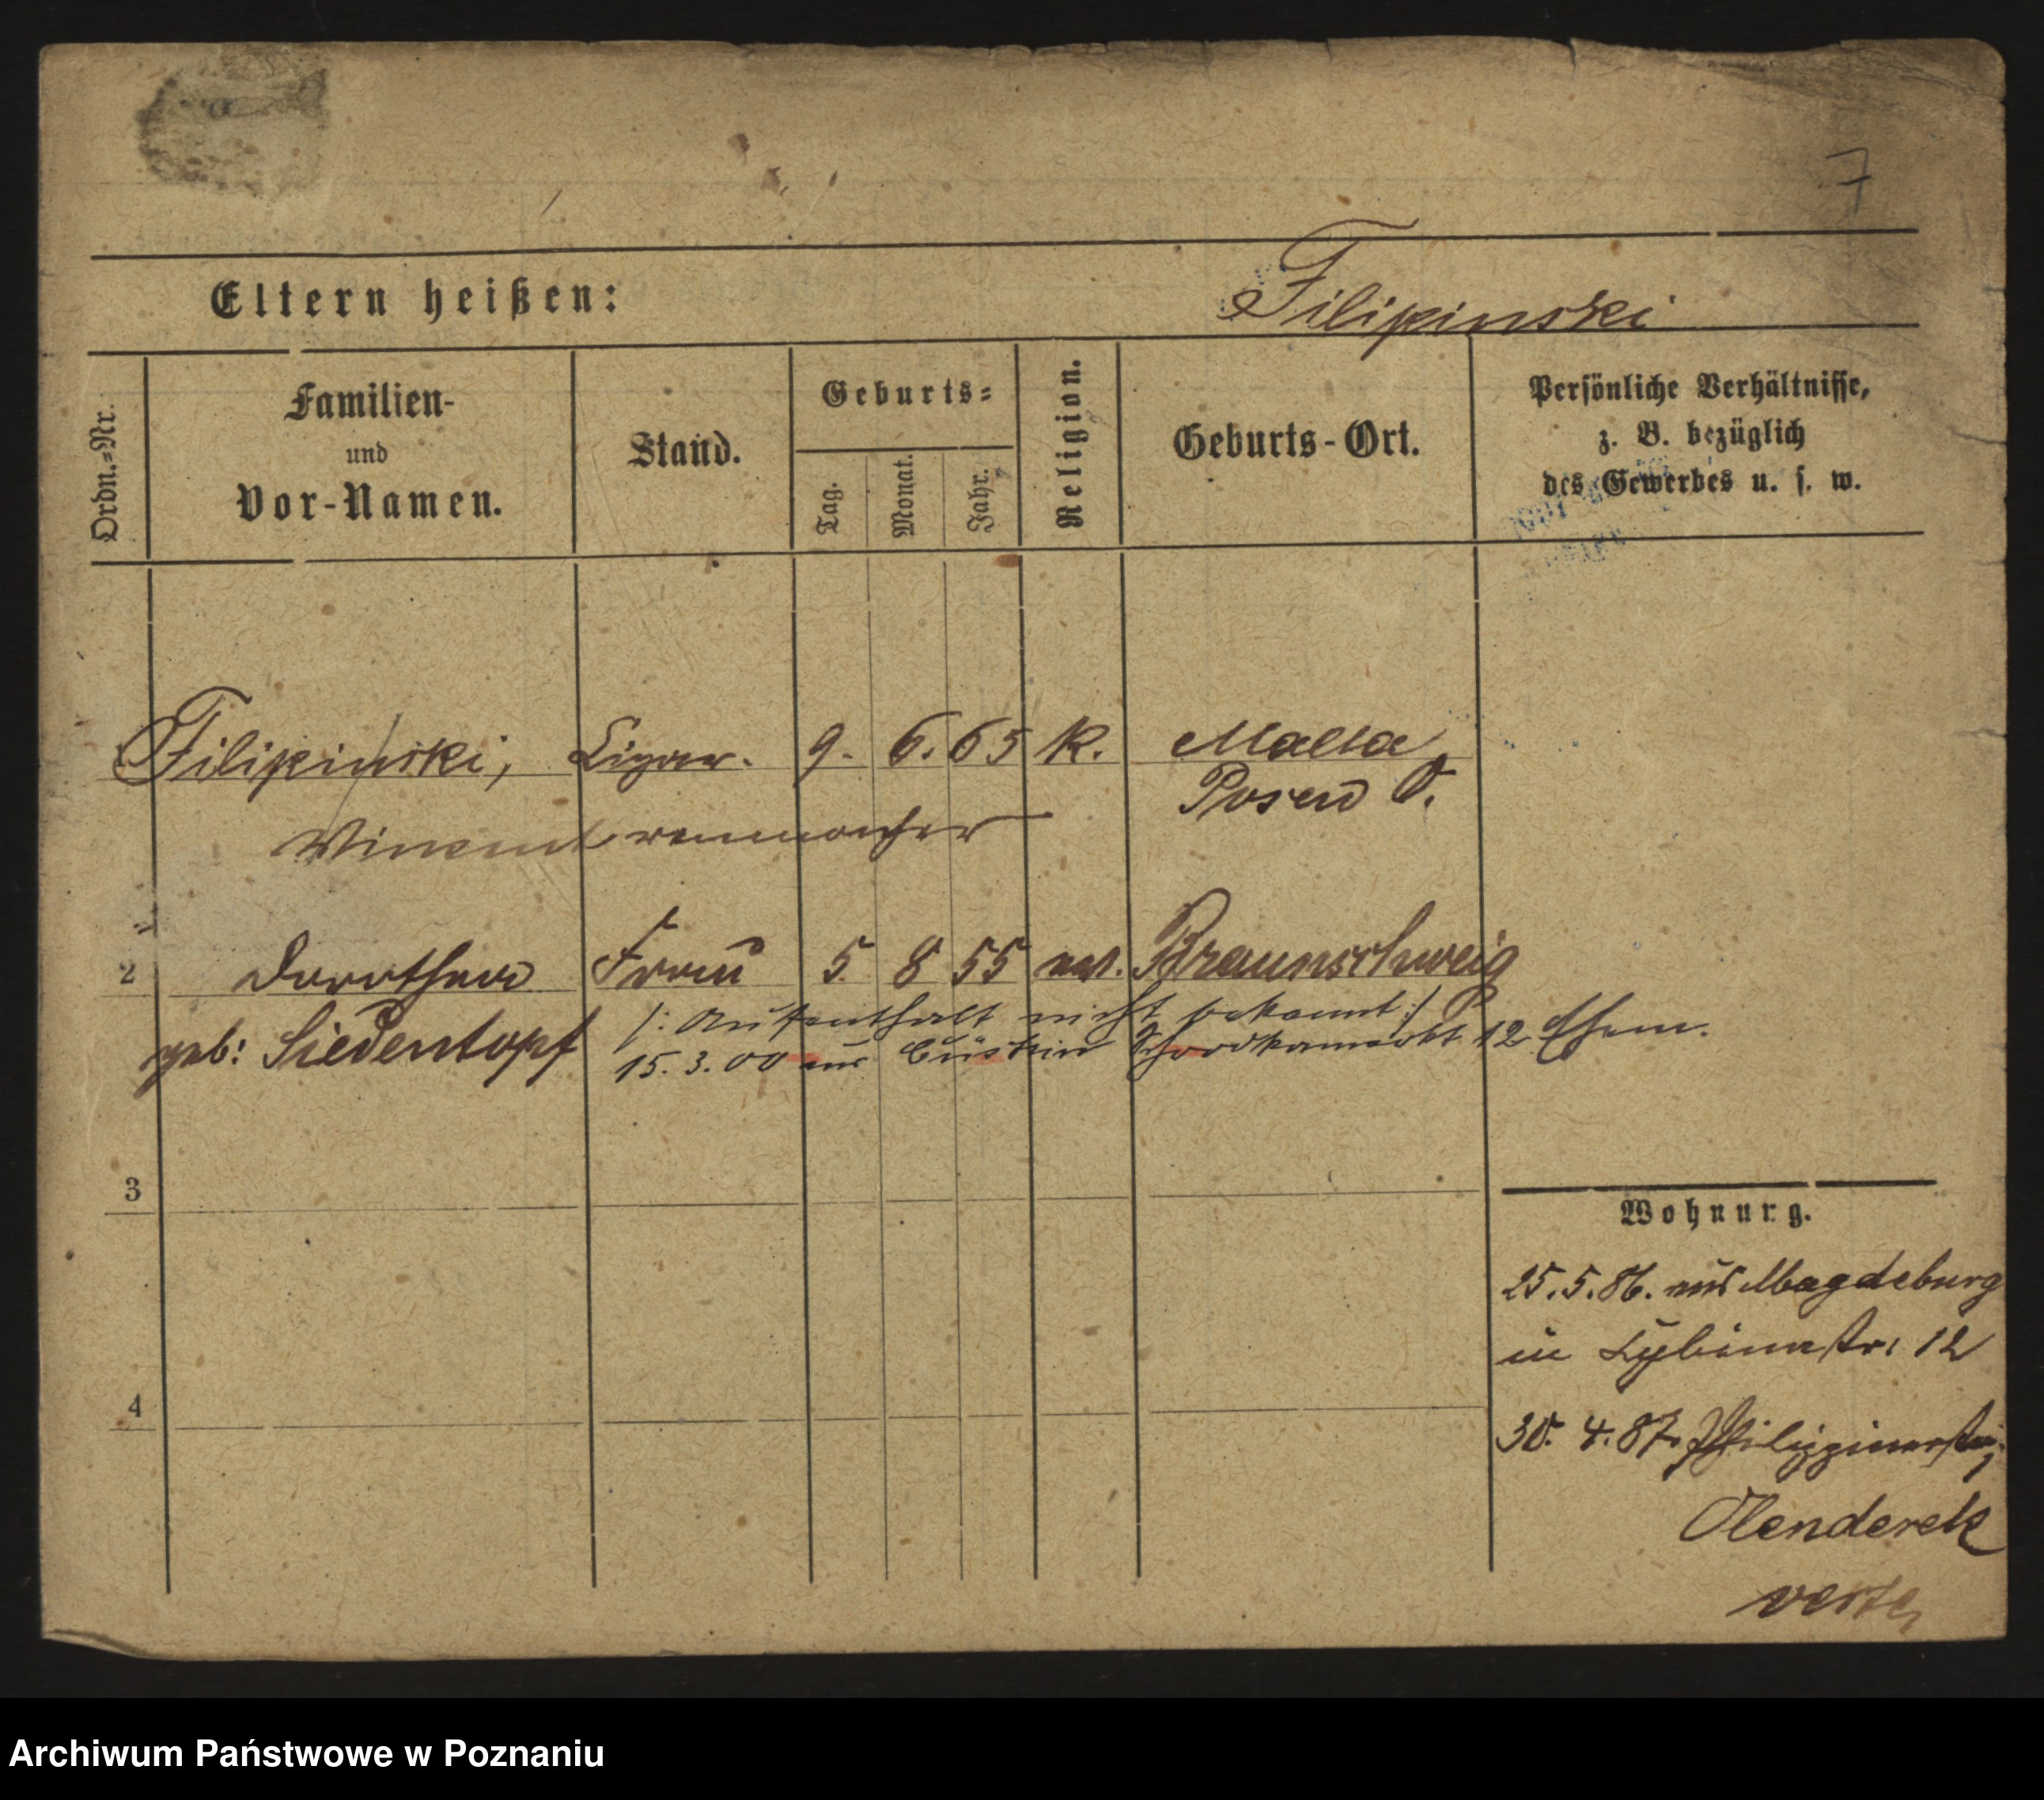 7
Eltern heißen: Filipinski
Ordn.=Nr.
Familien-
und
Vor-Namen.
Stand.
Geburts=
Tag.
Monat.
Jahr.
Religion.
Geburts-Ort.
Persönliche Verhältnisse,
z. B. bezüglich
des Gewerbes u. s. w.
Filipinski, Cigar- 9. 6. 65 k. Malta
Posen O.
Vincent renmacher
2 Dorothea Frau 5. 8 55 ev. Braunschweig
geb: Siedentopf /: Aufenthalt nicht bekannt :/
15. 3. 00 aus Cüstrin 12 Ehem.
3
Wohnung.
25. 5. 86. aus Magdeburg
in Cybinastr. 12
4
30. 4. 87.
Olenderek
verte
Archiwum Państwowe w Poznaniu